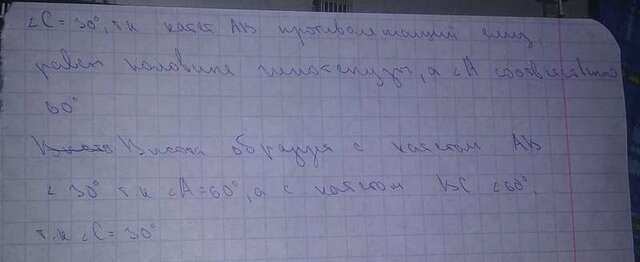 ∠C = 30°, т.к катет AB противолежащий ему,
равен половине гипотенузы, а ∠A соответственно
60°
Высота образует с катетом AB
∠30° т.к ∠A=60°, а с катетом BC ∠60°.
т.к ∠C = 30°